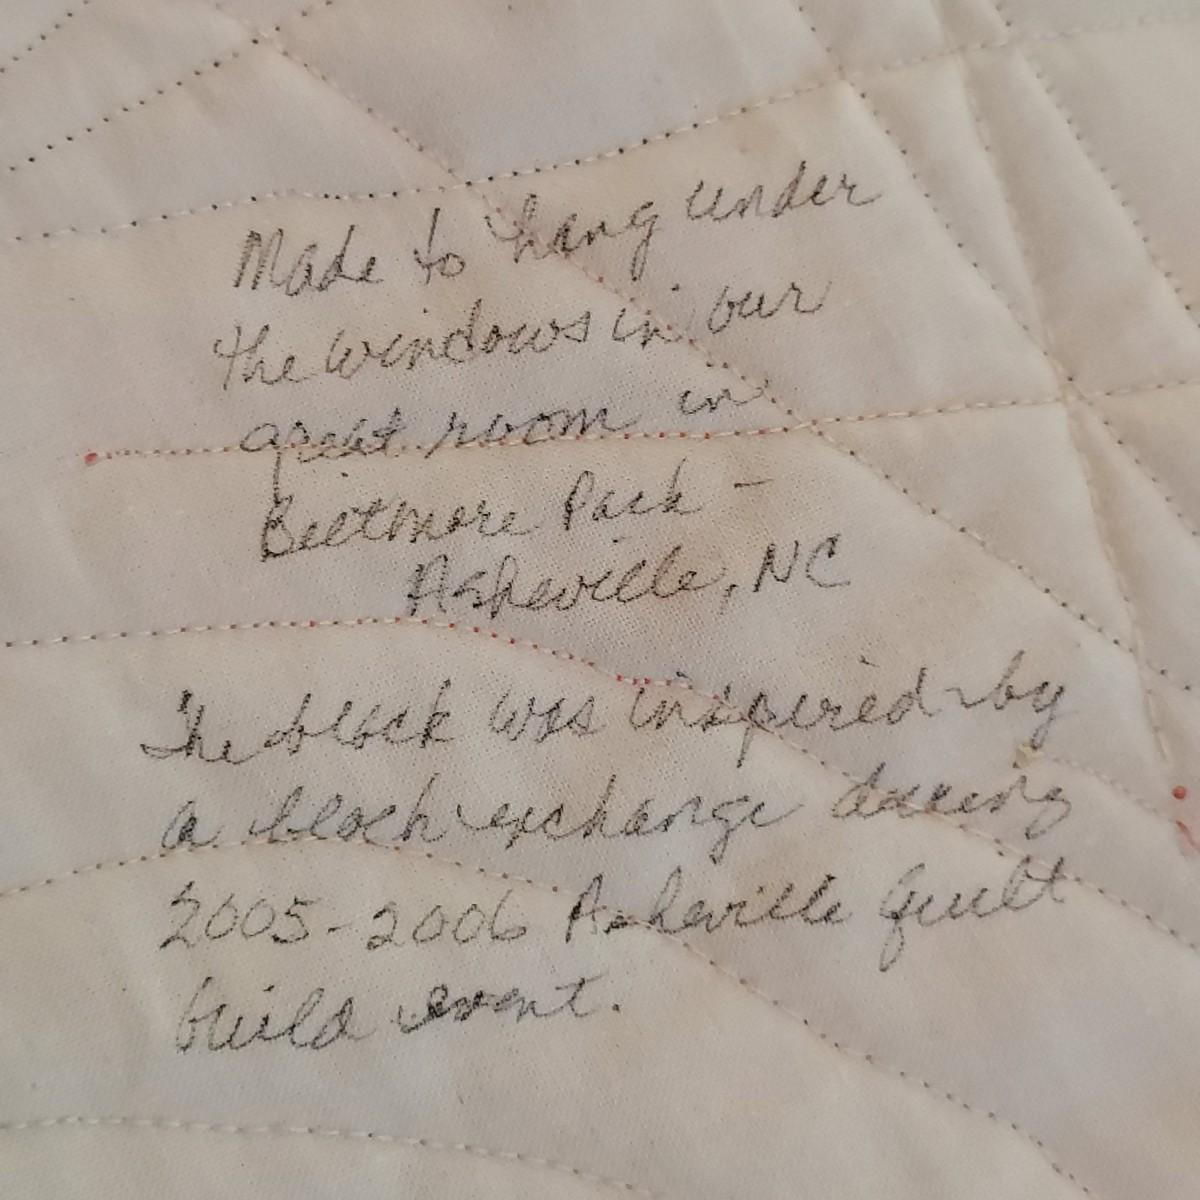 Made to hang under
the windows in our
great room in
Biltmore Park -
Asheville, NC
The block was inspired by
a block exchange during
2005-2006 Asheville Quilt
Guild event.